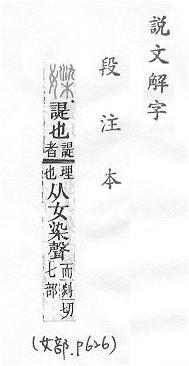 説文解字
段注本
䫡
諟也
諟者
理也
从女染聲
而剡切
七部
(女部.p626)